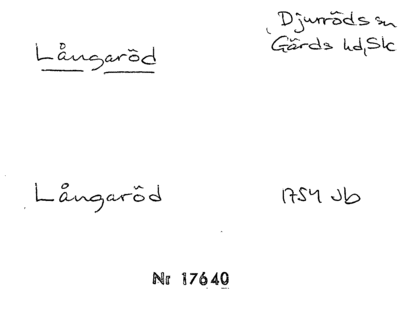 Djurröds sn
Långaröd
Gärds hd, Sk
Långaröd 1754 Jb
Nr 17640